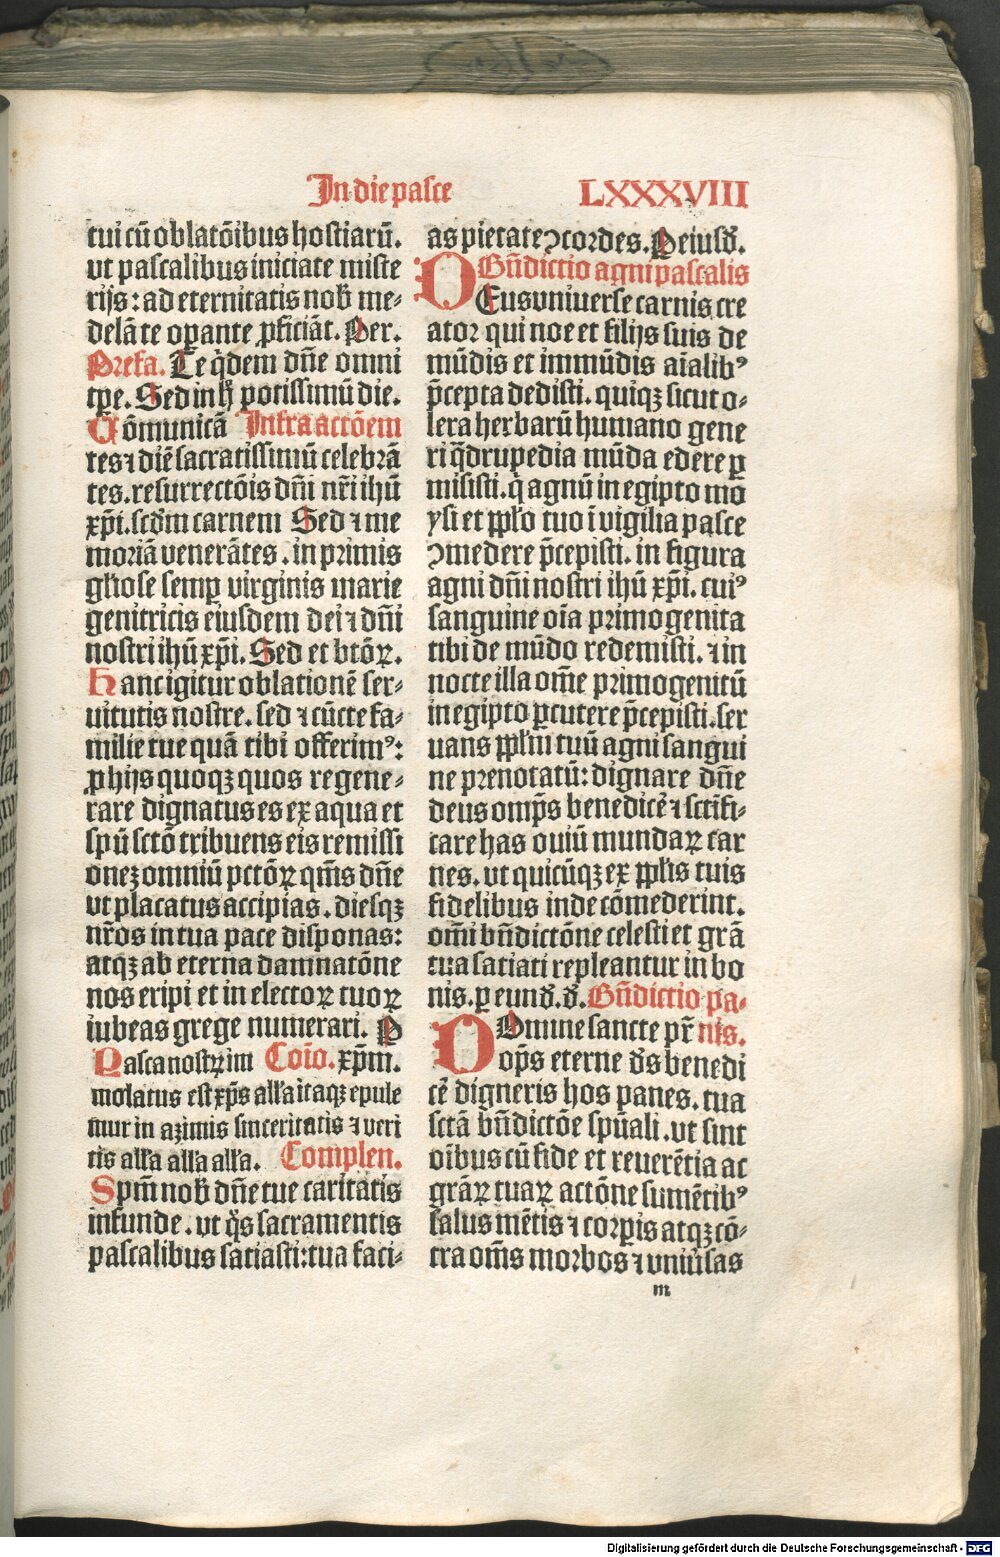 In die pasce LXXXVIII
tui cū oblatōibus hostiarū.
vt pascalibus iniciate miste
rijs: ad eternitatis nob̄ me⸗
delā te oꝑante ꝓficiāt. Per.
Prefa. Te q̄dem dn̄e omni
tp̄e. Sed in h̄ potissimū die.
Cōmunicā Infra actōem
tes ⁊ diē sacratissimū celebrā
tes. resurrectōis dn̄i nr̄i ihū
xp̄i. scd̄m carnem Sed ⁊ me
moriā venerātes. in primis
gl̄iose semꝑ virginis marie
genitricis eiusdem dei ⁊ dn̄i
nostri ihū xp̄i. Sed et btōꝝ.
Hanc igitur oblationē ser⸗
uitutis nostre. sed ⁊ cūcte fa⸗
milie tue quā tibi offerimꝰ:
ꝓ hijs quoqꝫ quos regene⸗
rare dignatus es ex aqua et
spū sctō tribuens eis remissi
onez omniū pctōꝝ qm̄s dn̄e
vt placatus accipias. diesqꝫ
nr̄os in tua pace disponas:
atqꝫ ab eterna damnatōne
nos eripi et in electoꝝ tuoꝝ
iubeas grege numerari. P
Pasca nostꝝ im Coīo. xp̄m.
molatus est xp̄s all'a itaqꝫ epule
mur in azimis sinceritatis ⁊ veri
tis all'a all'a all'a. Complen.
Spm̄ nob̄ dn̄e tue caritatis
infunde. vt q̄s sacramentis
pascalibus satiasti: tua faci⸗
as pietate ꝯcordes. P eiusd̄.
Bn̄dictio agni pascalis
DEus vniuerse carnis cre
ator qui noe et filijs suis de
mūdis et immūdis aīalibꝰ
p̄cepta dedisti. quiqꝫ sicut o⸗
lera herbarū humano gene
ri q̄drupedia mūda edere ꝑ
misisti. q̄ agnū in egipto mo
ysi et ppl'o tuo ī vigilia pasce
ꝯmedere p̄cepisti. in figura
agni dn̄i nostri ihū xp̄i. cuiꝰ
sanguine oīa primogenita
tibi de mūdo redemisti. ⁊ in
nocte illa om̄e primogenitū
in egipto ꝑcutere p̄cepisti. ser
uans ppl'm tuū agni sangui
ne prenotatū: dignare dn̄e
deus omp̄s benedicē ⁊ sctifi⸗
care has ouiū mundaꝝ car
nes. vt quicūqꝫ ex ppl'is tuis
fidelibus inde cōmederint.
om̄i bn̄dictōne celesti et grā
tua satiati repleantur in bo
nis. ꝑ eund̄. d̄. Bn̄dictio pa⸗
DOmine sancte pr̄ nis.
oōps eterne d̄s benedi
cē digneris hos panes. tua
sctā bn̄dictōe spūali. vt sint
oībus cū fide et reuerētia ac
grāꝝ tuaꝝ actōne sumētibꝰ
salus mētis ⁊ corꝑis atqꝫ cō⸗
tra om̄s morbos ⁊ vniūsas
m
Digitalisierung gefördert durch die Deutsche Forschungsgemeinschaft - DFG